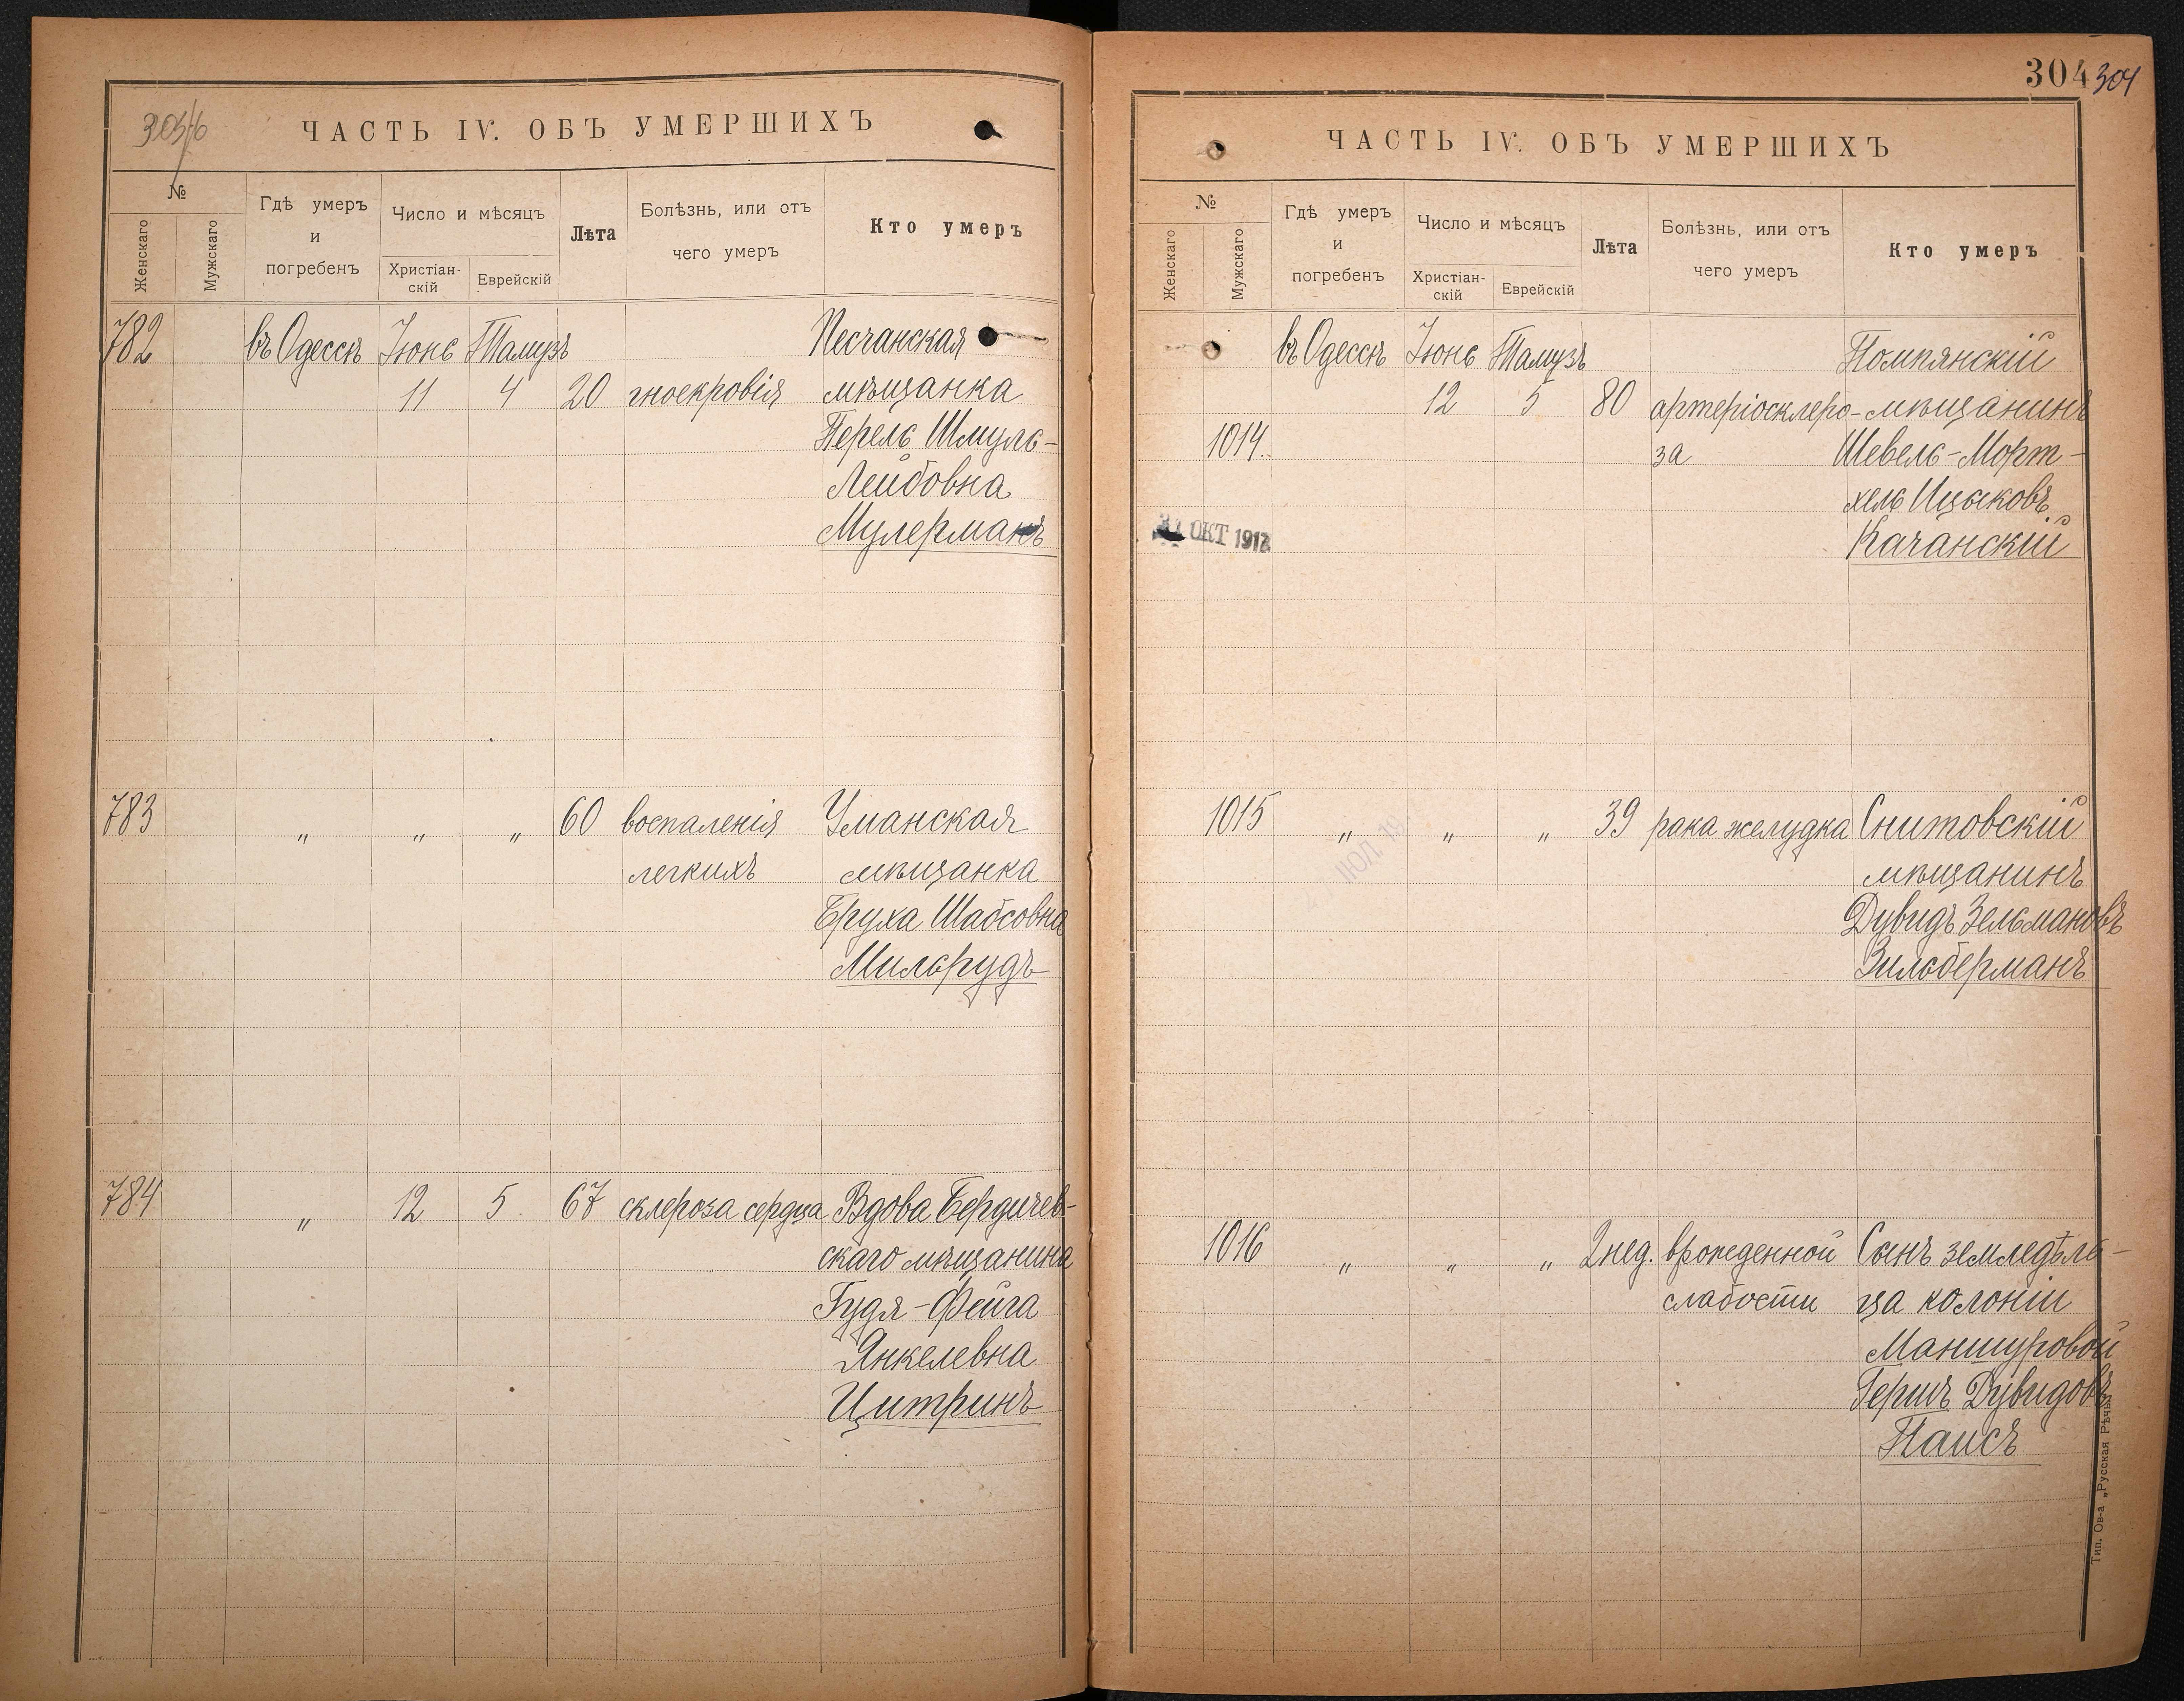 303/б
ЧАСТЬ IV. ОБЪ УМЕРШИХЪ
№
Женскаго
Мужскаго
Гдѣ умеръ
и
погребенъ
Число и мѣсяцъ
Христіан-
скій
Еврейскій
Лѣта
Болѣзнь, или отъ
чего умеръ
Кто умеръ
782 въ Одессѣ Іюнь Тамузъ Песчанская
11 4 20 гноекровія мѣщанка
Перель Шмуль-
Лейбовна
Мулерманъ
783 „ „ „ 60 воспаленія Уманская
легкихъ мѣщанка
Бруха Шабсовна
Мильрудъ
784 „ 12 5 67 склероза сердца Вдова Бердичев-
скаго мѣщанина
Гудя-Фейга
Янкелевна
Цитринъ
304 304
ЧАСТЬ IV. ОБЪ УМЕРШИХЪ
№
Женскаго
Мужскаго
Гдѣ умеръ
и
погребенъ
Число и мѣсяцъ
Христіан-
скій
Еврейскій
Лѣта
Болѣзнь, или отъ
чего умеръ
Кто умеръ
въ Одессѣ Іюнь Тамузъ Помпянскій
12 5 80 артеріосклеро- мѣщанинъ
1014. за Шевель-Морт-
хель Ицьковъ
Качанскій
ОКТ 1912
1015 „ „ „ 39 рака желудка Снитовскій
ІЮЛ 19
мѣщанинъ
Дувидъ Зельмановъ
Зильберманъ
1016 „ „ „ 2 нед. врожденной Сынъ земледѣль-
слабости ца колоніи
Маншуровой
Гершъ Дувидовъ
Паисъ
Тип. Ов-а „Русская Рѣчь“